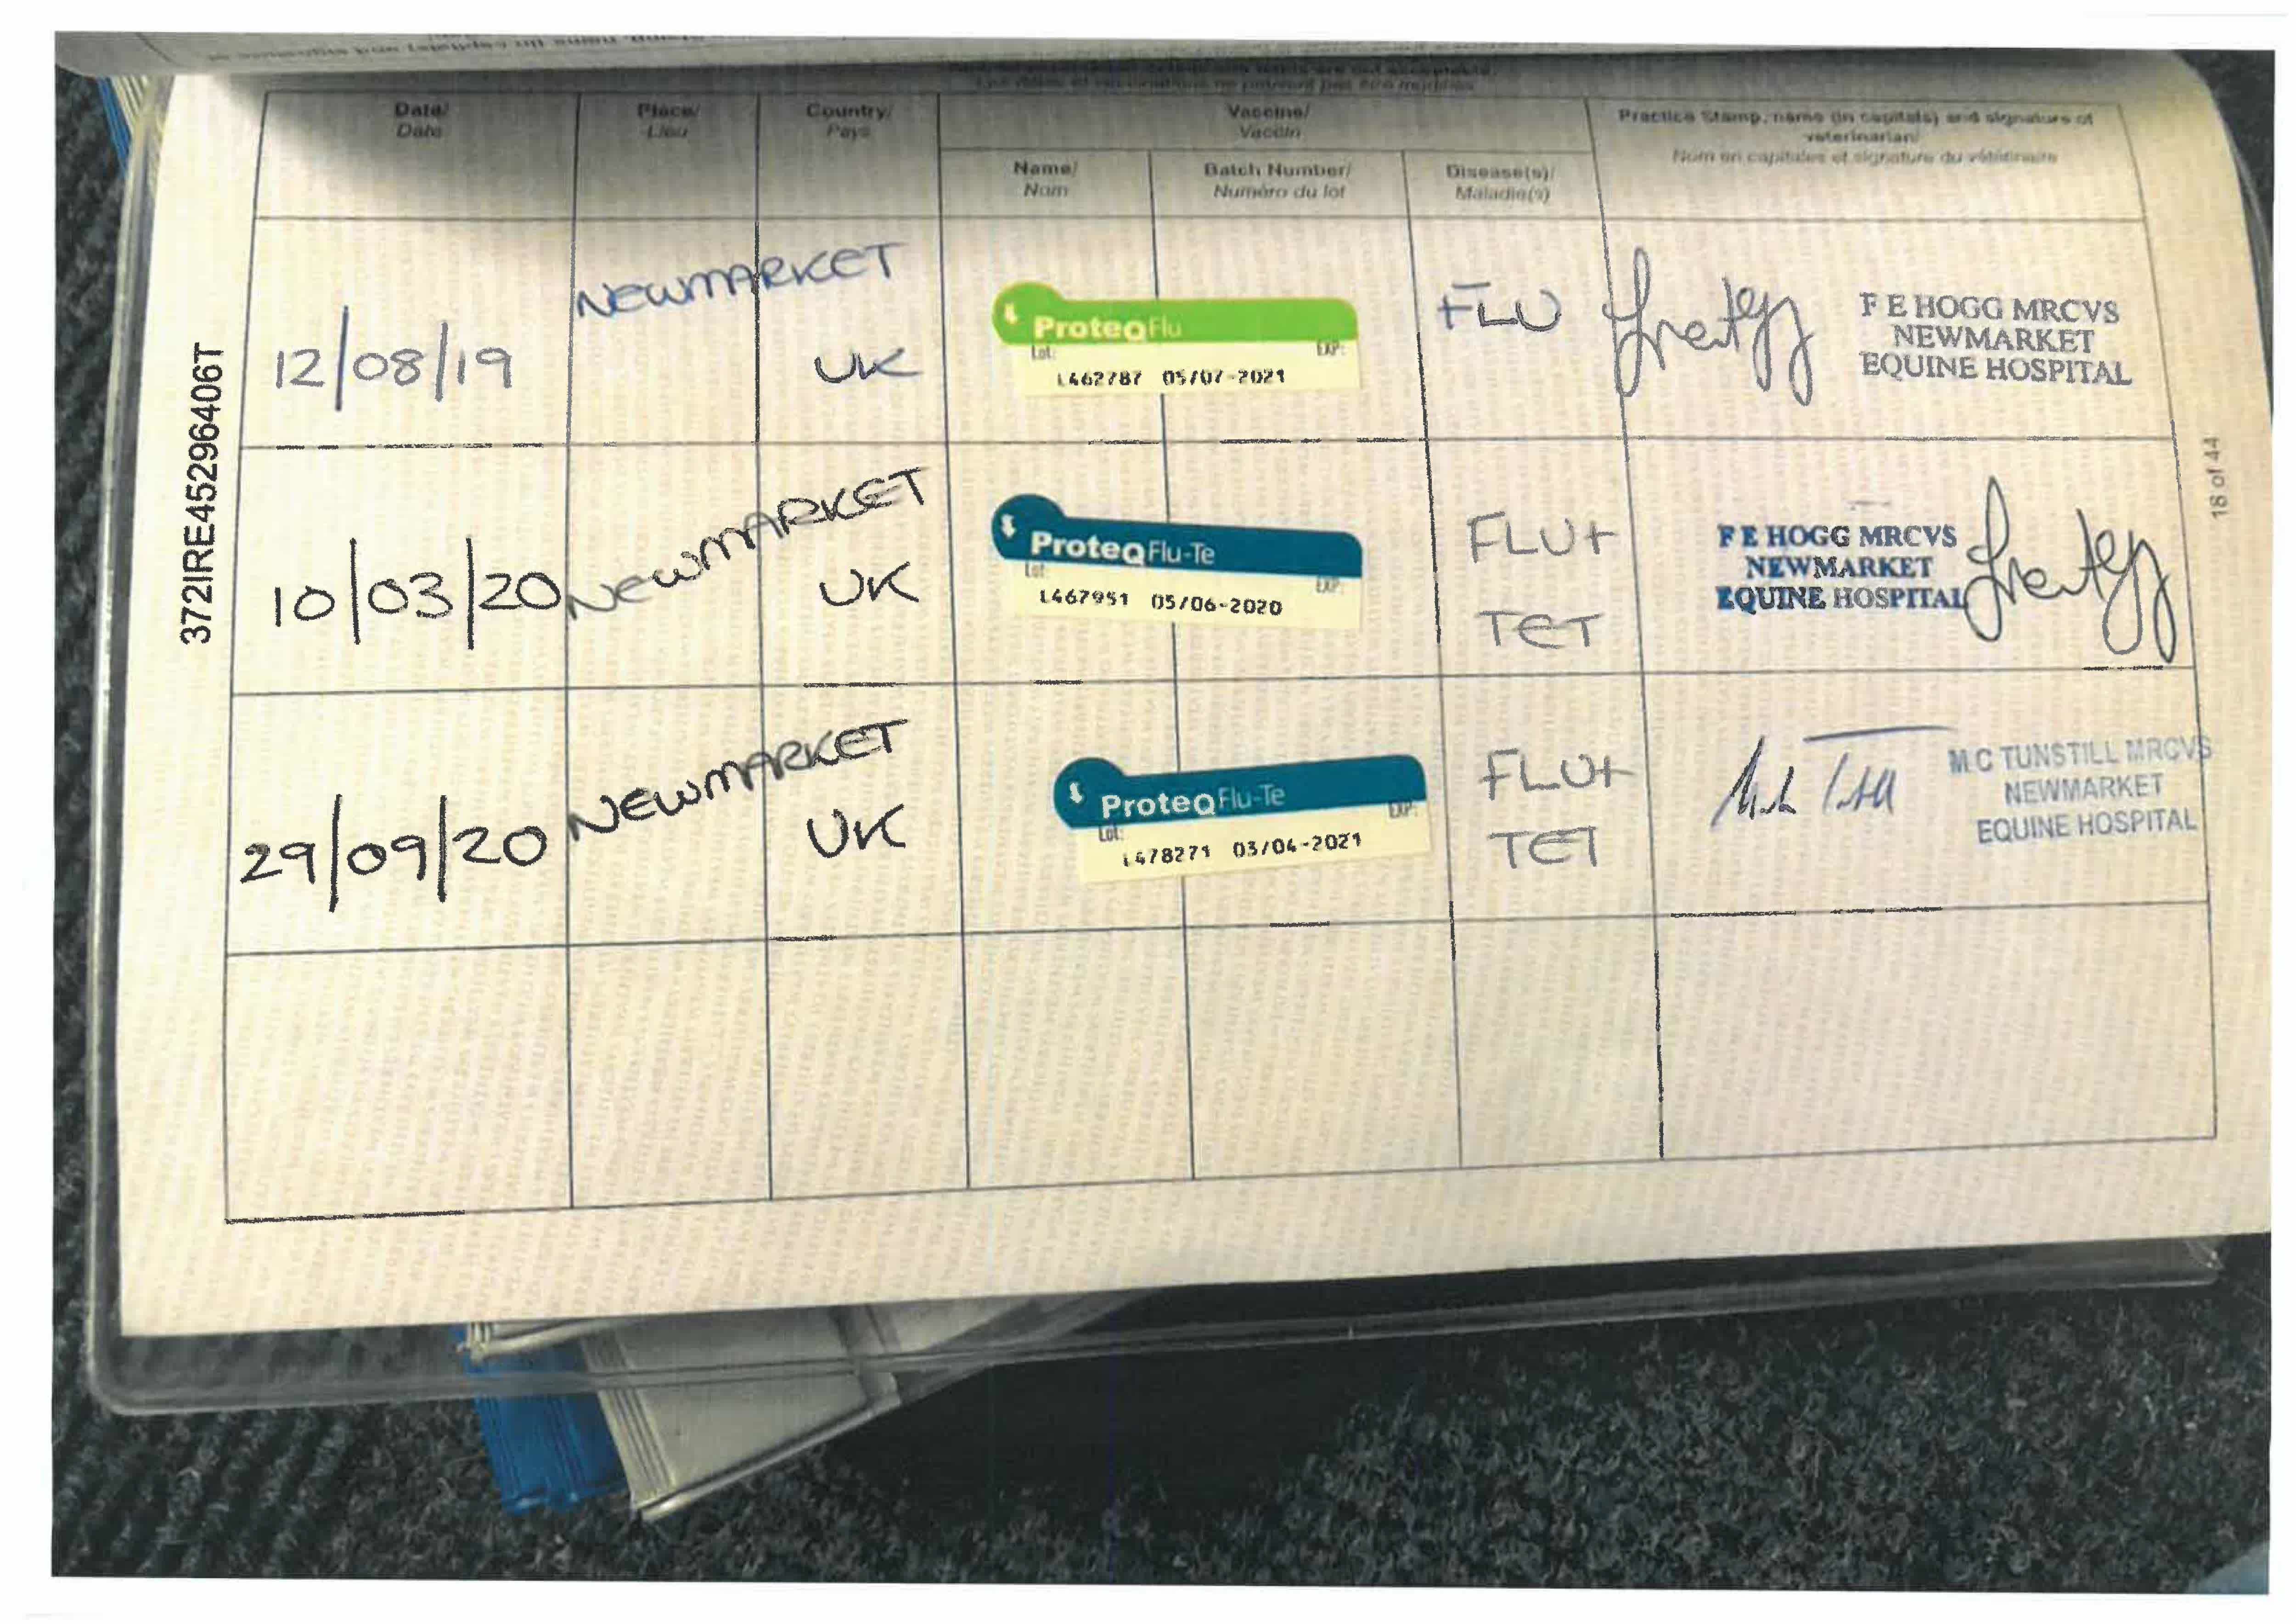 Date/ Place/ Country/ Vaccine/ Practice Stamp, name (in capitals) and signature of
Date Lieu Pays Vaccin veterinarian/
Nom en capitales et signature du vétérinaire
Name/ Batch Number/ Disease(s)/
Nom Numéro du lot Maladie(s)
372IRE45296406T
18 of 44
12/08/19 NEWMARKET UK
ProteqFlu
Lot: EXP:
L462787 05/07-2021
FLU
F E HOGG MRCVS
NEWMARKET
EQUINE HOSPITAL
10/03/20 NEWMARKET UK
ProteqFlu-Te
Lot: EXP:
L467951 05/06-2020
FLU+
TET
F E HOGG MRCVS
NEWMARKET
EQUINE HOSPITAL
29/09/20 NEWMARKET UK
ProteqFlu-Te
Lot: EXP:
L478271 03/04-2021
FLU+
TET
M C TUNSTILL MRCVS
NEWMARKET
EQUINE HOSPITAL